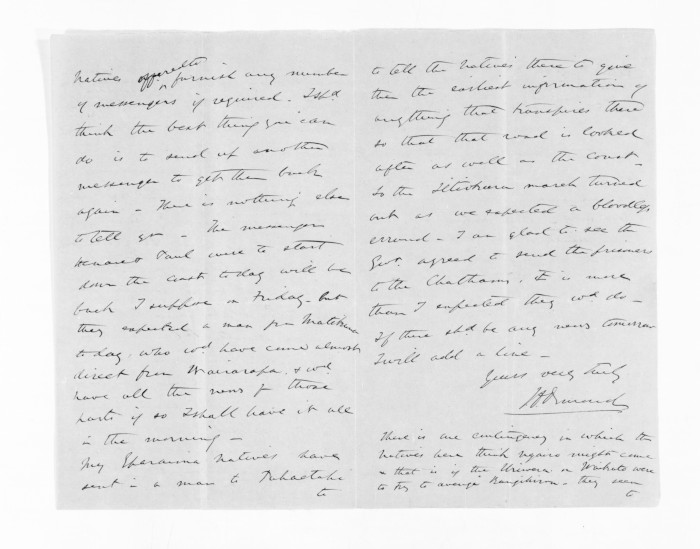 natives offered to furnish any number
of messengers if required. I shd
think the best thing you can
do is to send up another
messenger to get them back
again – There is nothing else
to tell you – The messengers
Paul were to start
down the coast today will be
back I suppose on Friday – but
they expected a man from
today, who wod have come almost
direct from Wairarapa, & wod
have all the news of those
parts if so I shall have it all
in the morning –
My natives have
sent a man to
to
to tell the natives there to give
them the earliest information of
anything that transpires there
so that that road is looked
after as well as the coast –
So the march turned
out as we expected a bloodless
errand – I am glad to see the
Govt. agreed to send the prisoners
to the Chathams. It is more
than I expected they wd do –
If there shd be any news tomorrow
I will add a line –
Yours very truly
J D Ormond
There is one contingency in which the
natives here think might come
& that is if the Uriwera or Waikato were
to try to avenge – they seem
to